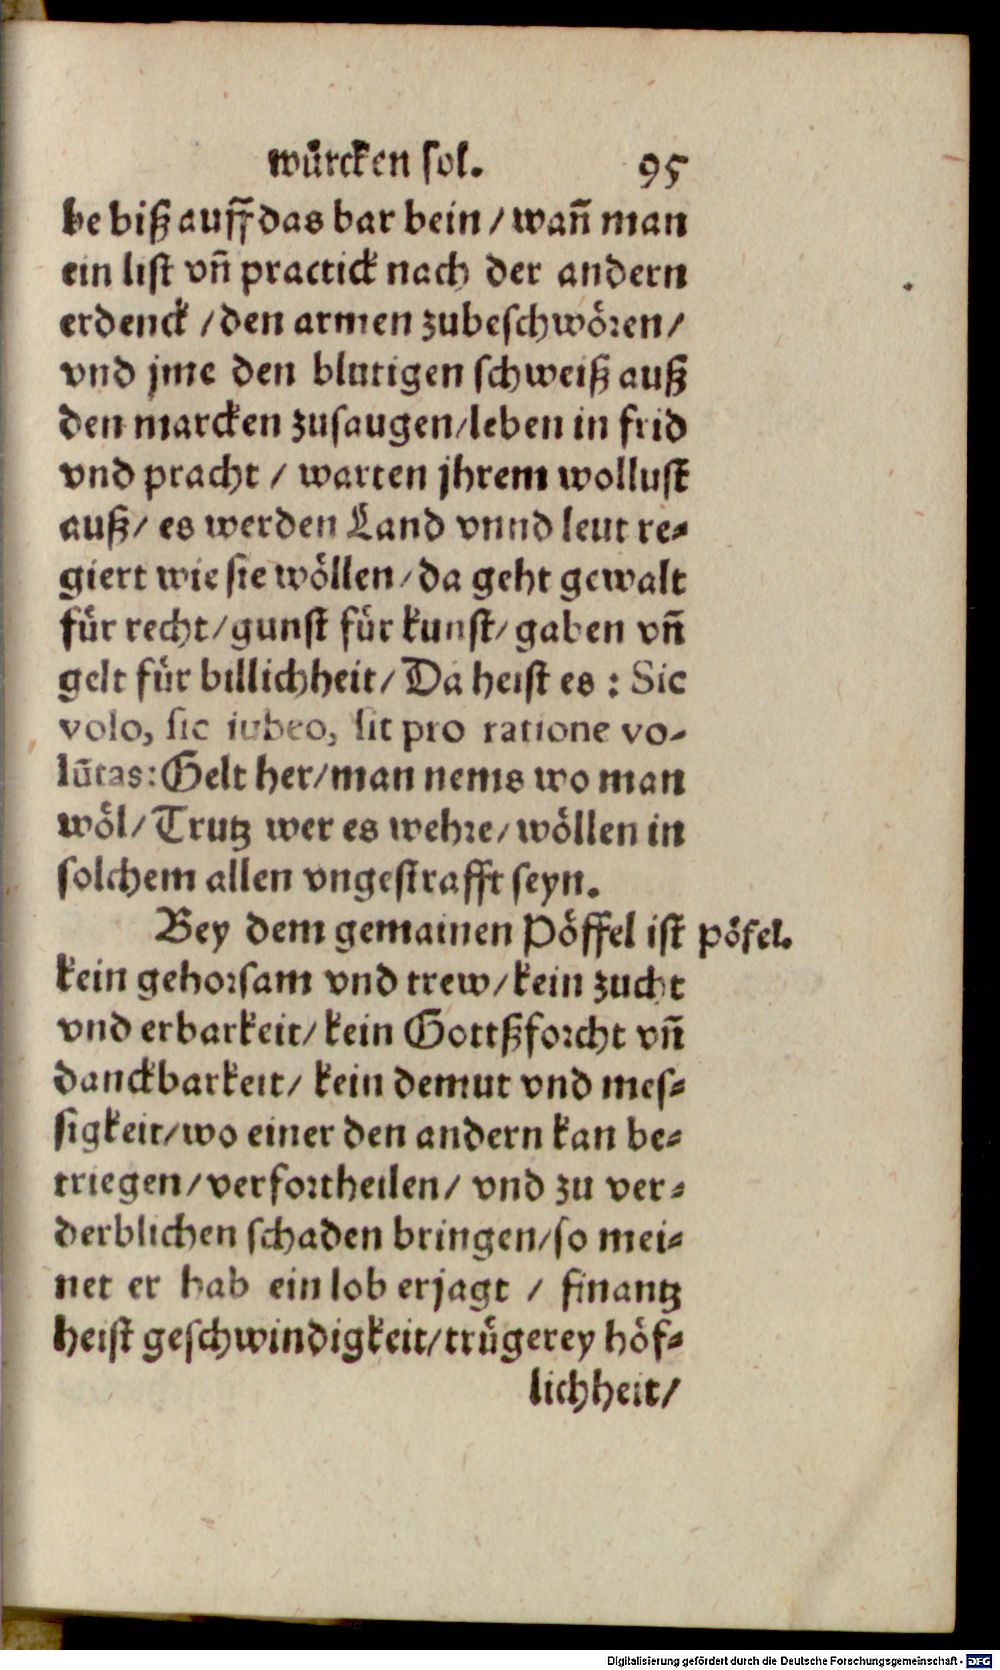 würcken sol. 95
be biß auff das bar bein / wañ man
ein list vñ practick nach der andern
erdenck / den armen zubeschwören /
vnd jme den blutigen schweiß auß
den marcken zusaugen / leben in frid
vnd pracht / warten jhrem wollust
auß / es werden Land vnnd leut re-
giert wie sie wöllen / da geht gewalt
für recht / gunst für kunst / gaben vñ
gelt für billichheit / Da heist es : Sic
volo, sic iubeo, sit pro ratione vo-
lũtas: Gelt her / man nems wo man
wöl / Trutz wer es wehre / wöllen in
solchem allen vngestrafft seyn.
Bey dem gemainen Pöffel ist pöfel.
kein gehorsam vnd trew / kein zucht
vnd erbarkeit / kein Gottßforcht vñ
danckbarkeit / kein demut vnd mes-
sigkeit / wo einer den andern kan be-
triegen / verfortheilen / vnd zu ver-
derblichen schaden bringen / so mei-
net er hab ein lob erjagt / finantz
heist geschwindigkeit / trügerey höf-
lichheit /
Digitalisierung gefördert durch die Deutsche Forschungsgemeinschaft - DFG